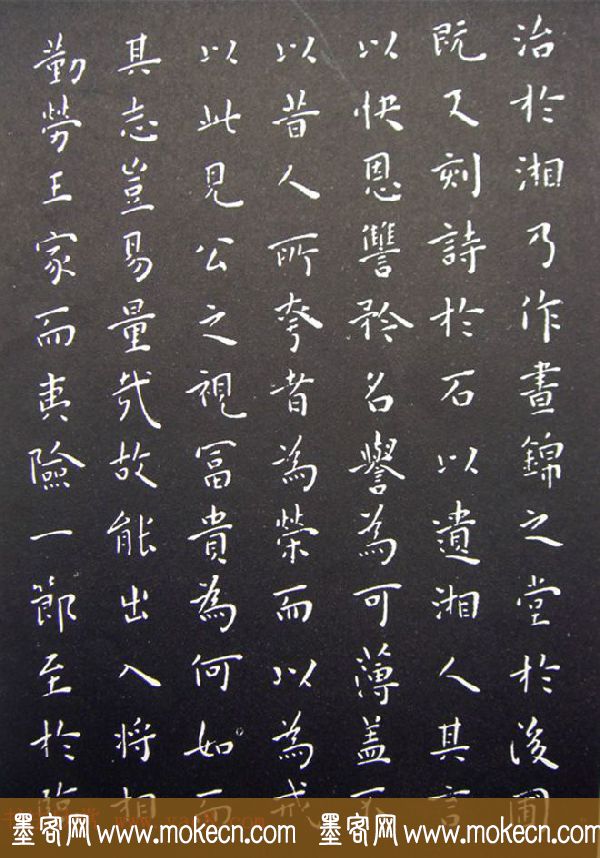 治於湘乃作晝錦之堂於後圃
既又刻詩於石以遺湘人其言
以快恩讐矜名譽為可薄盖不
以昔人所夸者為榮而以為戒
以此見公之視冨貴為何如而
其志豈易量哉故能出入將相
勤勞王家而夷險一節至於臨
墨客网 www.mokecn.com 墨客网 www.mokecn.com